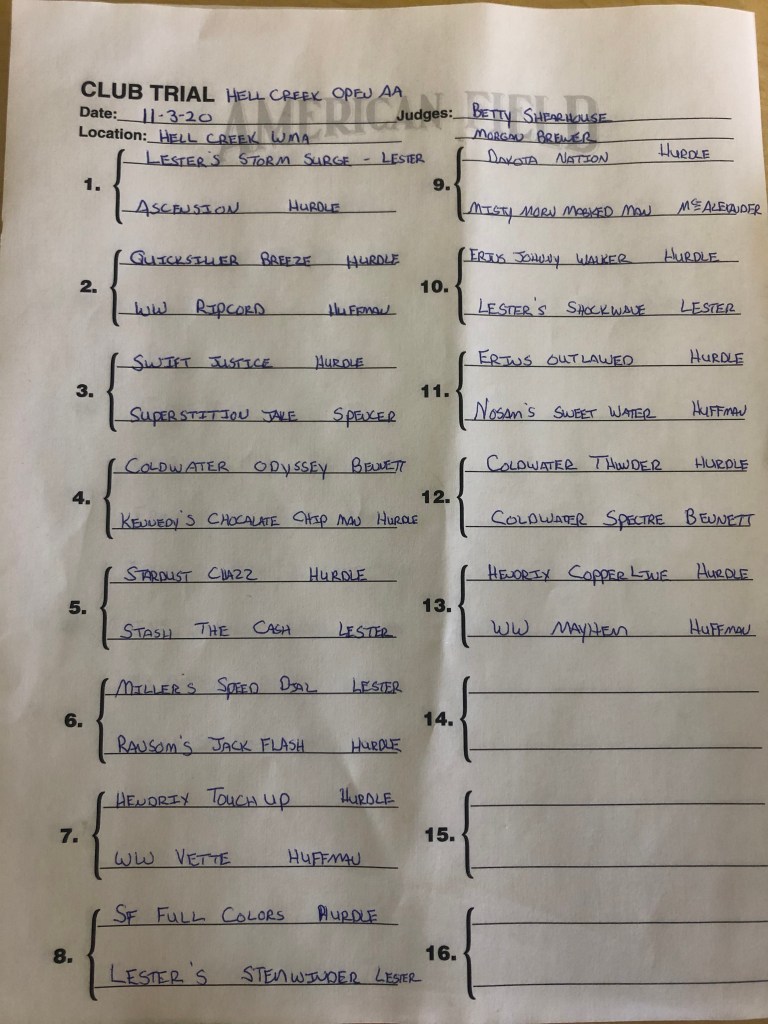 AMERICAN FIELD
CLUB TRIAL HELL CREEK OPEN AA
Date: 11-3-20
Location: HELL CREEK WMA
Judges: BETTY SHEARHOUSE
MORGAN BREWER
1. LESTER'S STORM SURGE - LESTER
ASCENSION HURDLE
2. QUICKSILVER BREEZE HURDLE
WW RIPCORD HUFFMAN
3. SWIFT JUSTICE HURDLE
SUPERSTITION JAKE SPENCER
4. COLDWATER ODYSSEY BENNETT
KENNEDY'S CHOCALATE CHIP MAN HURDLE
5. STARDUST CHAZZ HURDLE
STASH THE CASH LESTER
6. MILLER'S SPEED DIAL LESTER
RANSOM'S JACK FLASH HURDLE
7. HENDRIX TOUCH UP HURDLE
WW VETTE HUFFMAN
8. SF FULL COLORS HURDLE
LESTER'S STEMWINDER LESTER
9. DAKOTA NATION HURDLE
MISTY MORN MASKED MAN McALEXANDER
10. ERINS JOHNNY WALKER HURDLE
LESTER'S SHOCKWAVE LESTER
11. ERINS OUTLAWED HURDLE
NOSAM'S SWEET WATER HUFFMAN
12. COLDWATER THUNDER HURDLE
COLDWATER SPECTRE BENNETT
13. HENDRIX COPPER LINE HURDLE
WW MAYHEM HUFFMAN
14.
15.
16.